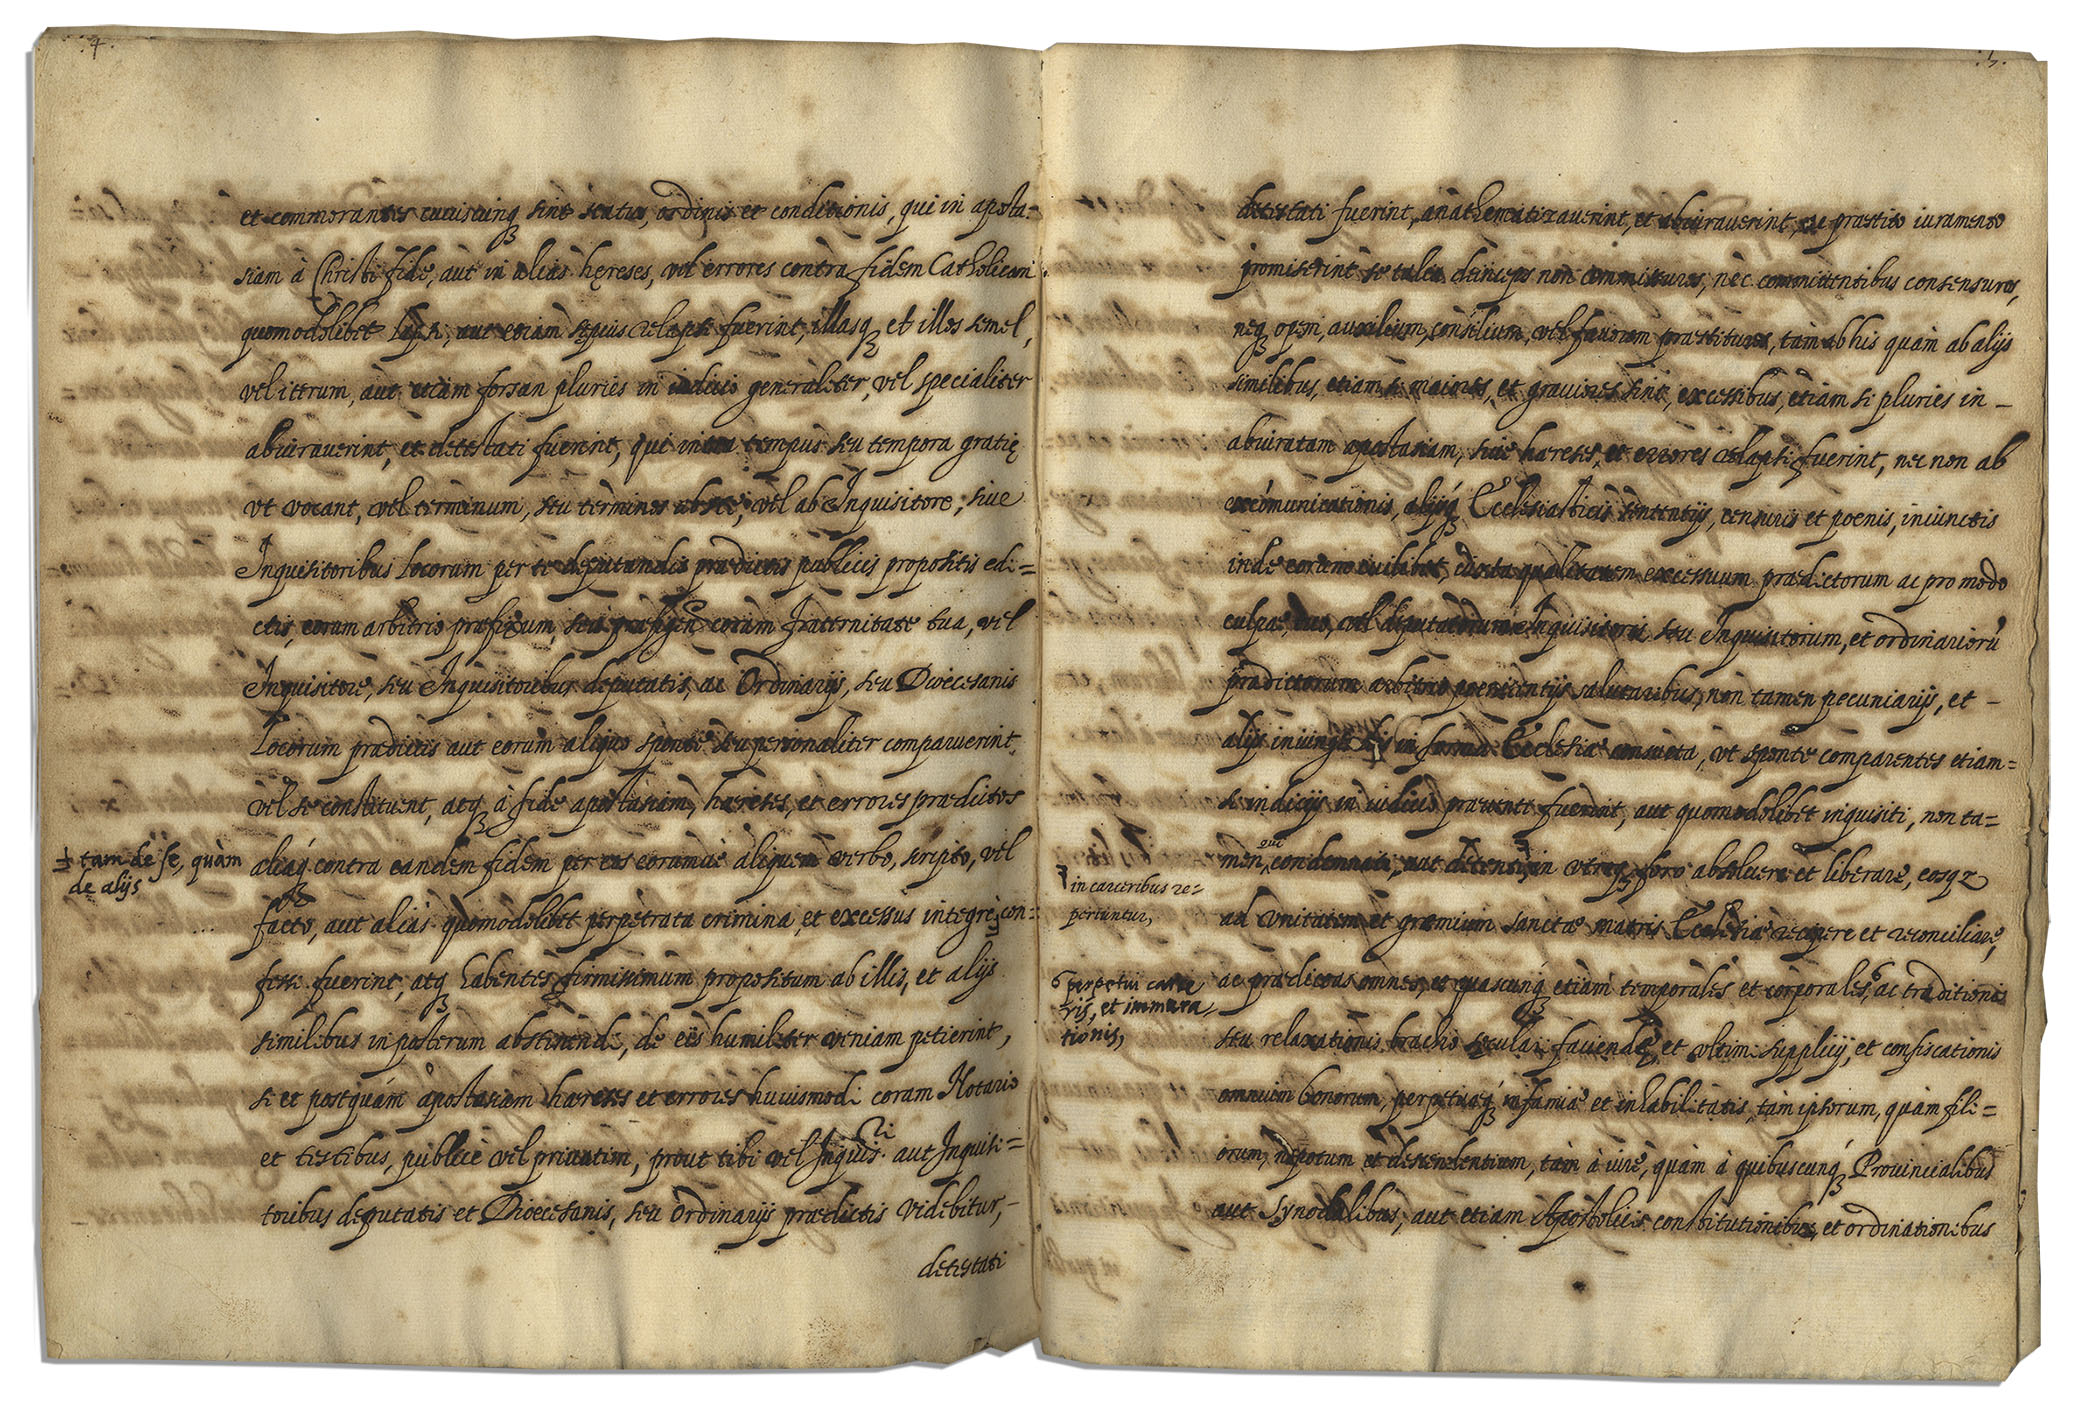 .4.
et commorantes cuiuscunq; sint status, ordinis et conditionis, qui in aposta=
siam à Christi fide, aut in alias hęreses, vel errores contrà fidem Catholicam
quomodolibet lapsi, aut etiam sępius relapsi fuerint, illasq; et illos semel,
vel iterum, aut etiam forsan pluries in iudicio generaliter, vel specialiter
abiuraverint, et detestati fuerint, qui intra tempus seu tempora gratię
vt vocant, vel terminum, seu terminos abs te, vel ab Inquisitore, siue
Inquisitoribus locorum per te deputandis prædictis publicis propositis edi=
ctis, eorum arbitrio præfixum, seu coràm fraternitate tua, vel
Inquisitore, seu Inquisitoribus deputatis, ac Ordinarijs, seu Diœcesanis
locorum prædictis aut eorum aliquo sponte seu personaliter comparuerint,
vel se constituent, atq; à fide apostasiam, hæreses, et errores prædictos
aliaq; contra eandem fidem per eos eorumuè aliquem verbo, scripto, vel
tam de se, quàm
de alijs
facto, aut aliàs quomodolibet perpetrata crimina, et excessus integrè con=
fessi fuerint, atq; habentes firmissimum propositum ab illis, et alijs
similibus in posterum abstinendi, de eis humiliter veniam petierint,
si et postquám apostasiam hæreses et errores huiusmodi coram Notario
et testibus, publicè vel priuatim, prout tibi vel Inquisri. aut Inquisi=
toribus deputatis et Diœcesanis, seu Ordinarijs prædictis videbitur,-
detestati
.5.
detestati fuerint, anathematizauerint, et abiurauerint, ac præstito iuramento
promiserint se talia deinceps non commissuros, nèc committentibus consensuros,
neq; opem, auxilium, consilium, vel fauorem præstituros, tàm ab his quàm ab alijs
similibus, etiam si maiores, et grauiores sint, excessibus, etiàm si pluries in -
abiuratam apostasiam, siue hæreses, et errores relapsi fuerint, nec non ab
excómunicationis, alijsq; Ecclesiasticis sententijs, censuris et poenis, iniunctis
inde eorum cuilibet, iuxta qualitatem excessuum prædictorum ac pro modo
culpæ, tuo, vel deputatorum Inquisitoris seu Inquisitorum, et ordinariorũ
prædictorum arbitrio poenitentijs salutaribus, non tamen pecuniarijs, et -
alijs iniungendis in forma Ecclesiæ consueta, vt sponte comparentes etiam=
si indicijs in iudicio præuenti fuerint, aut quomodolibet inquisiti, non ta=
men, condemnati, aut detenti in vtroq; foro absoluere et liberare, eosq;
in carceribus re=
periuntur,
ad vnitatem et græmium sanctæ matris Ecclesiæ recipere et reconciliare,
ac prædictas omnes, et quascunq; etiam temporales et corporales, ac traditionis
perpetui carce
ris, et immura
tionis,
seu relaxationis brachio seculari faciendę, et vltimi supplicij, et confiscationis
omnium bonorum, perpetuæq; infamiæ et inhabilitatis, tàm ipsorum, quàm fili=
orum, nepotum et descendentium, tàm à iure, quàm à quibuscunq; Prouincialibus
aut Synodalibus, aut etiam Apostolicis constitutionibus, et ordinationibus